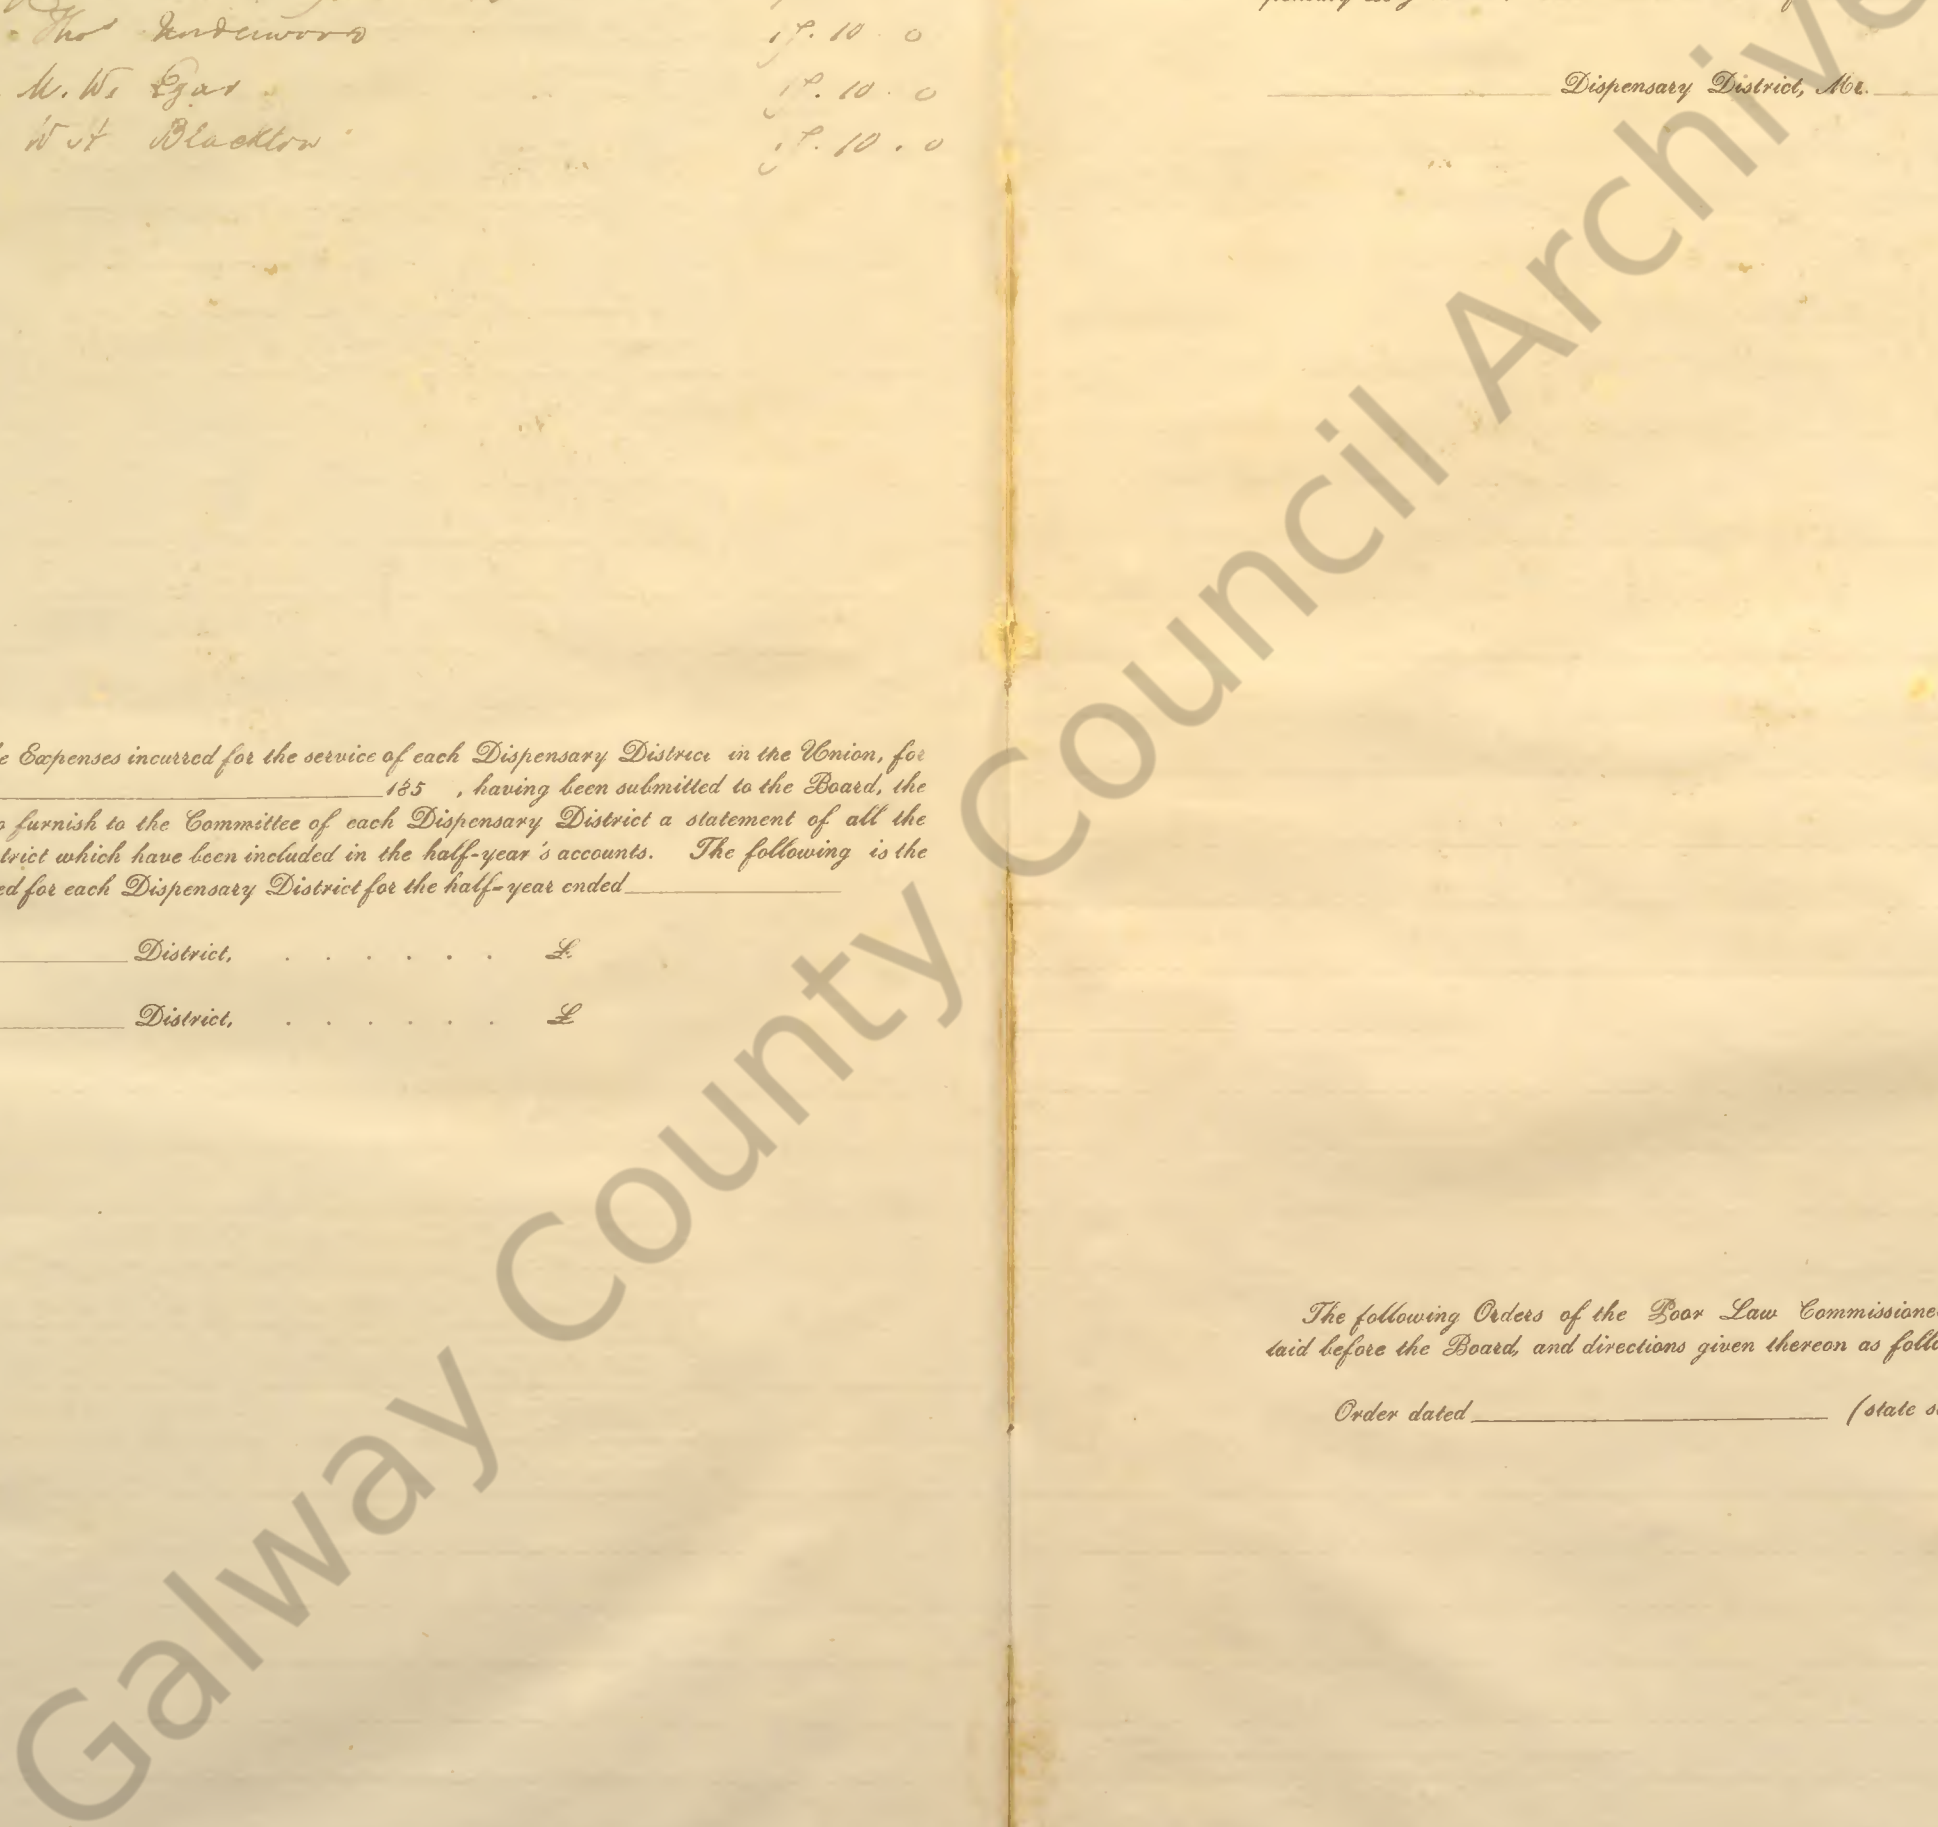 Thos Underwood 17. 10. 0
M. W. Egar 17. 10. 0
Wm Blackton 17. 10. 0
Expenses incurred for the service of each Dispensary District in the Union, for
185 , having been submitted to the Board, the
furnish to the Committee of each Dispensary District a statement of all the
trict which have been included in the half-year's accounts. The following is the
ed for each Dispensary District for the half-year ended
District, . . . . . . £
District, . . . . . . £
Dispensary District, Mr.
The following Orders of the Poor Law Commissione
laid before the Board, and directions given thereon as follo
Order dated (state s
Galway County Council Archive